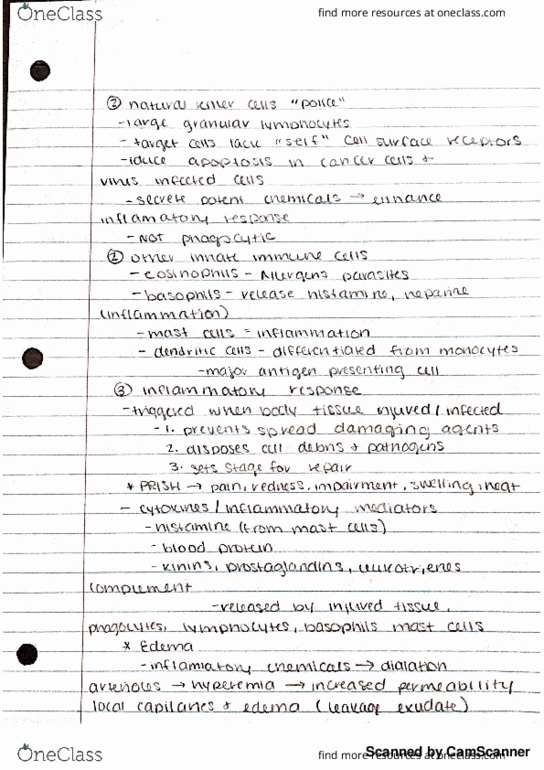 OneClass
find more resources at oneclass.com
② natural killer cells "police"
-large granular lymphocytes
- target cells lack "self" cell surface receptors
-iduce apoptosis in cancer cells +
virus infected cells
-secrete potent chemicals → enhance
inflamatory response
-NOT phagocytic
② other innate immune cells
- eosinophils - Allergens parasites
- basophils - release histamine, heparine
(inflammation)
- mast cells = inflammation
- dendritic cells - differentiated from monocytes
-major antigen presenting cell
③ inflammatory response
-triggered when body tissue injured / infected
- 1. prevents spread damaging agents
2. disposes cell debris + pathogens
3. sets stage for repair
* PRISH → pain, redness, impairment, swelling, heat
- cytokines / inflammatory mediators
-histamine (from mast cells)
- blood protein
- kinins, prostaglandins, leukotrienes
complement
-released by injured tissue,
phagocytes, lymphocytes, basophils mast cells
* Edema
-inflamatory chemicals → dialation
arterioles → hyperemia → increased permeability
local capilaries + edema (leakage exudate)
OneClass
find more resources at oneclass.com
Scanned by CamScanner